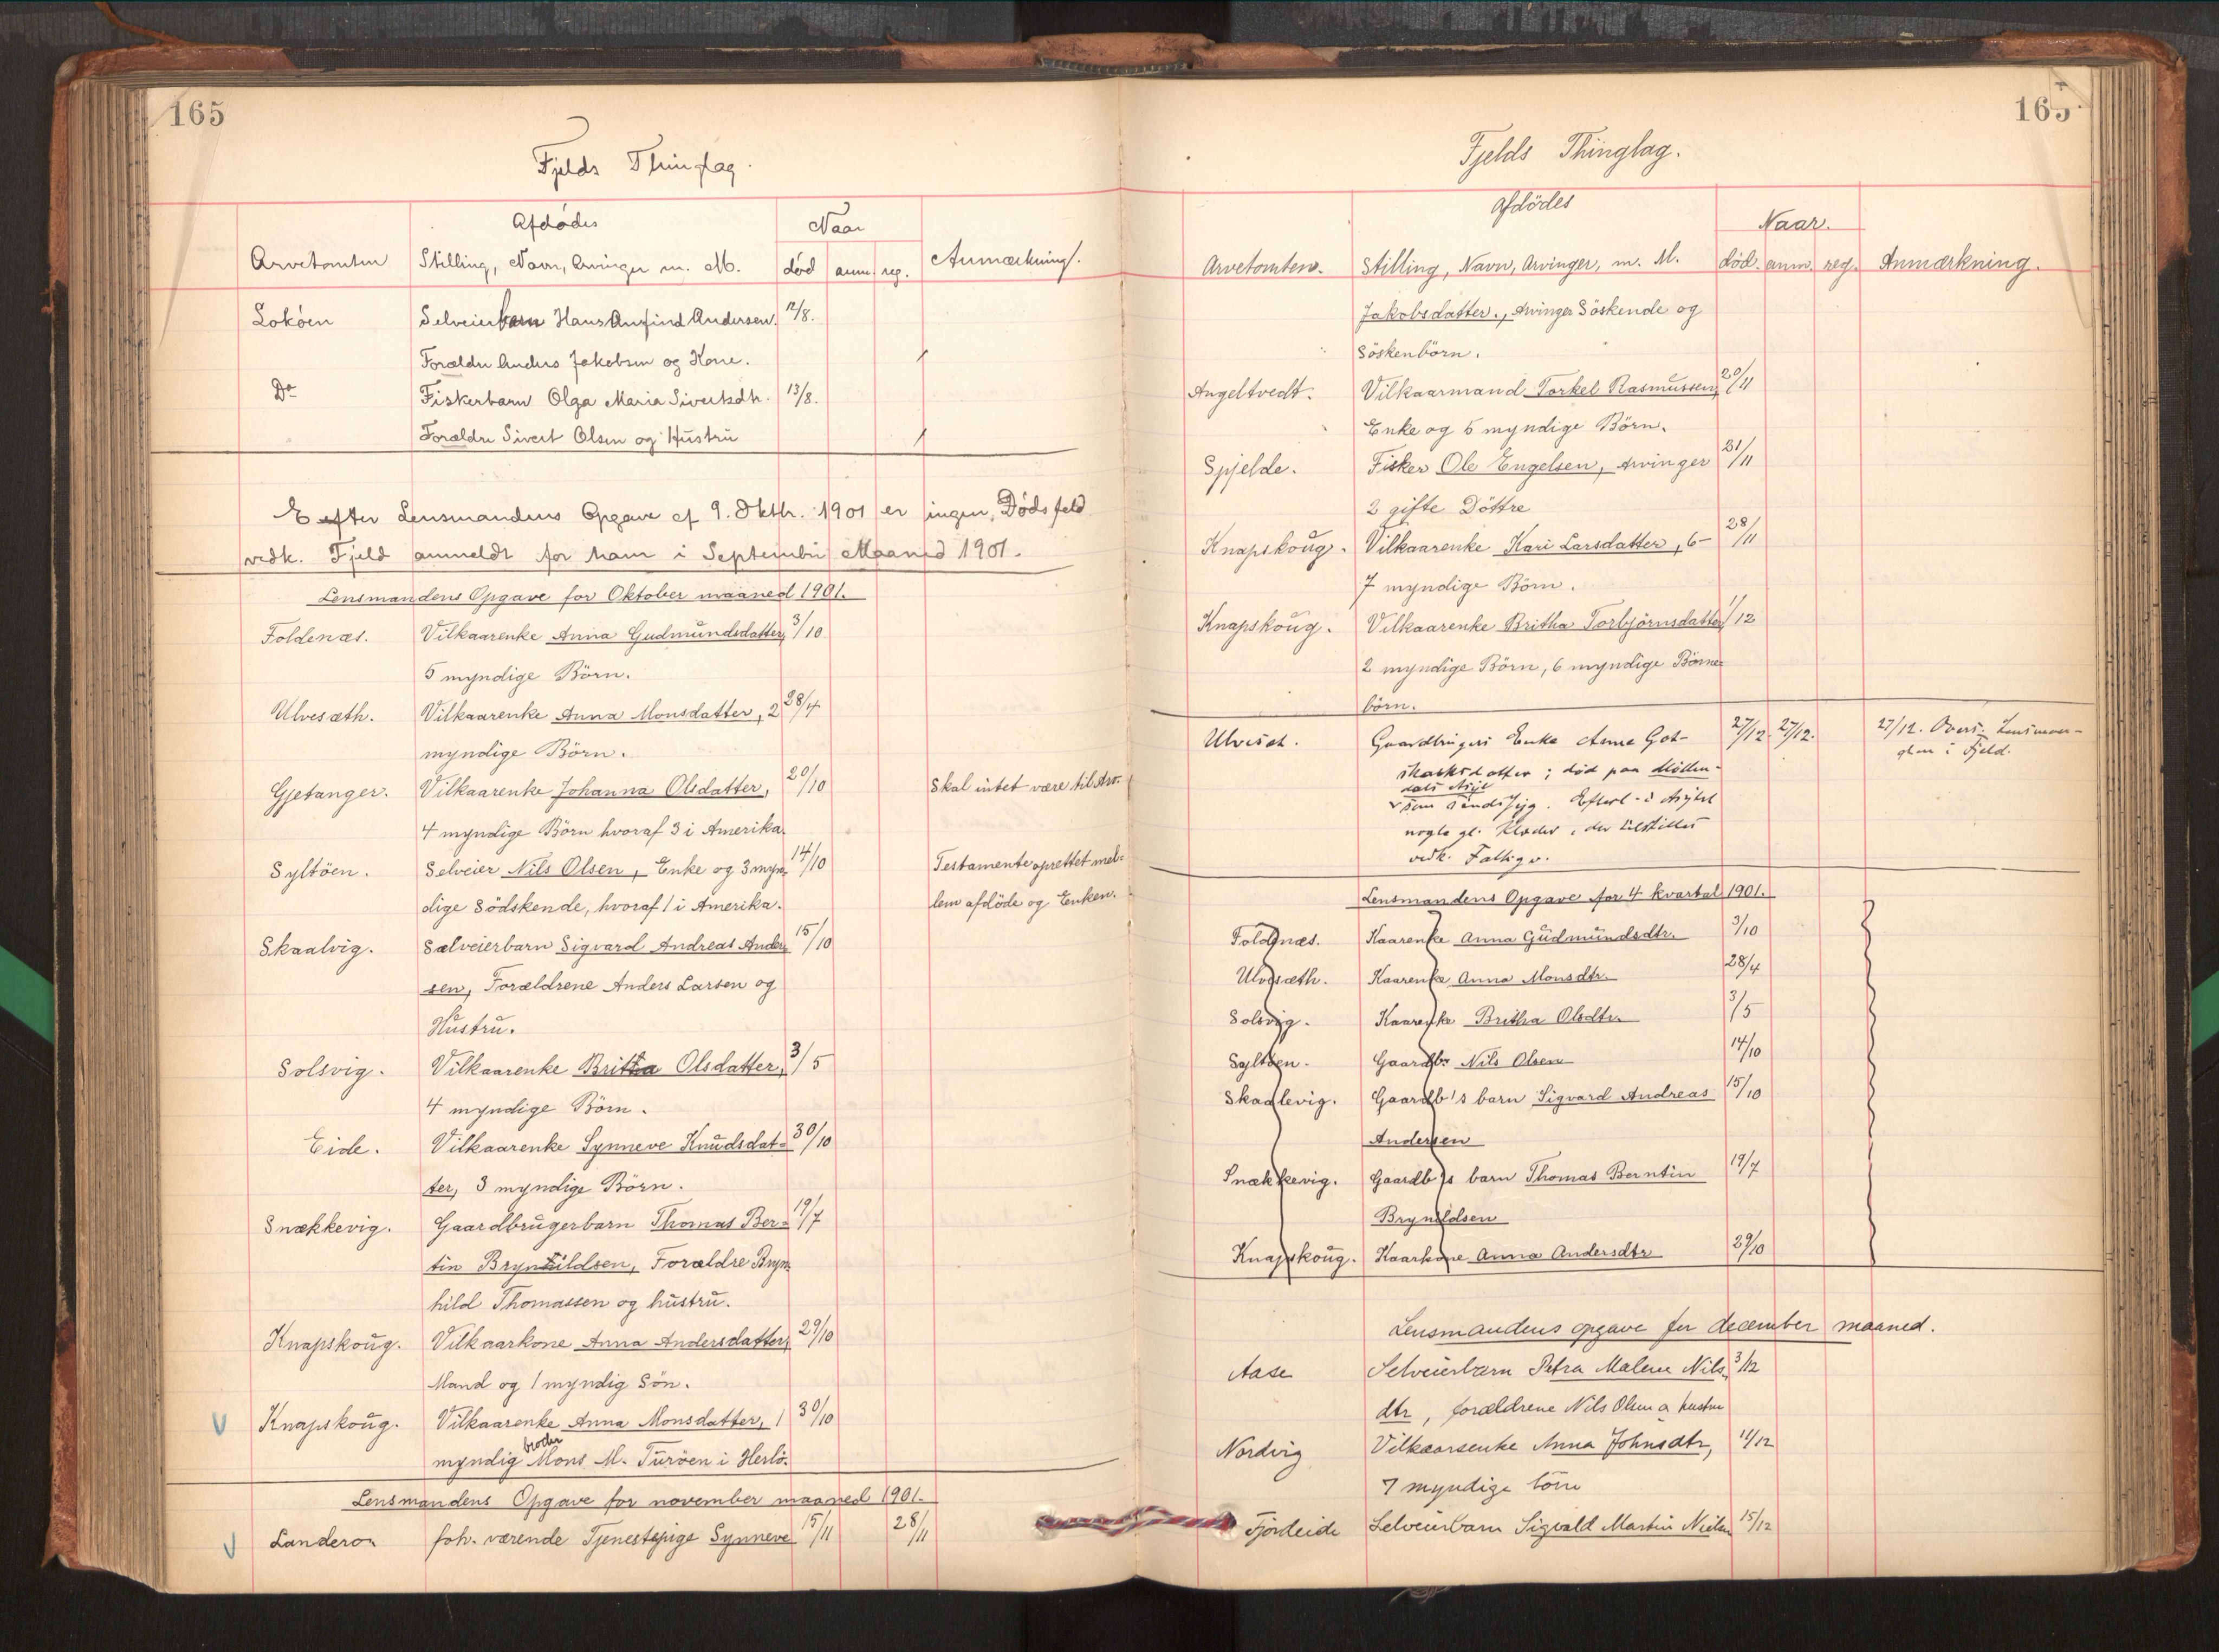 165
Fjelds Thinglag.
Afdødes
Naar
Arvetomten Stilling, Navn, Arvinger m. M. død anm. reg. Anmærkning.
Lokøen Selveierbarn Hans Anfind Andersen. 12/8.
Forældre Anders Jakobsen og Kone.
Do Fiskerbarn Olga Maria Sivertsdtr. 13/8.
Forældre Sivert Olsen og Hustru
Efter Lensmandens Opgave af 9. Oktbr. 1901 er ingen Dødsfald
vedk. Fjeld anmeldt for ham i September Maaned 1901.
Lensmandens Opgave for Oktober maaned 1901.
Foldenæs. Vilkaarenke Anna Gudmundsdatter, 3/10
5 myndige Börn.
Ulvesæth. Vilkaarenke Anna Monsdatter, 2 28/4
myndige Börn.
Gjetanger. Vilkaarenke Johanna Olsdatter, 20/10 Skal intet være til Arv.
4 myndige Börn hvoraf 3 i Amerika.
Syltöen. Selveier Nils Olsen, Enke og 3 myn- 14/10 Testamente oprettet mel-
dige Södskende, hvoraf 1 i Amerika. lem afdöde og Enken.
Skaalvig. Sælveierbarn Sigvard Andreas Ander- 15/10
sen, Forældrene Anders Larsen og
Hustru.
Solsvig. Vilkaarenke Britha Olsdatter, 3/5
4 myndige Börn.
Eide. Vilkaarenke Synneve Knudsdat- 30/10
ter, 3 myndige Börn.
Snækkevig. Gaardbrugerbarn Thomas Ber- 19/7
tin Brynhildsen, Forældre Bryn-
hild Thomassen og hustru.
Knapskoug. Vilkaarkone Anna Andersdatter, 29/10
Mand og 1 myndig Sön.
Knapskoug. Vilkaarenke Anna Monsdatter, 1 30/10
myndig broder Mons M. Turöen i Herlö.
Lensmandens Opgave for november maaned 1901.
Landero foh. værende Tjenestepige Synneve 15/11 28/11
165
Fjelds Thinglag.
Afdödes
Naar.
Arvetomten. Stilling, Navn, Arvinger, m. M. död. anm. reg. Anmærkning.
Jakobsdatter., Arvinger Söskende og
Söskenbörn.
Angeltvedt. Vilkaarmand Torkel Rasmussen, 20/11
Enke og 5 myndige Börn.
Spjelde. Fisker Ole Engelsen, Arvinger 21/11
2 gifte Döttre
Knapskoug. Vilkaarenke Kari Larsdatter, 6- 28/11
7 myndige Börn.
Knapskoug. Vilkaarenke Britha Torbjörnsdatter 1/12
2 myndige Börn, 6 myndige Börne-
börn.
Ulveset. Gaardbrugers Enke Anna Got- 27/12. 27/12. 27/12. Overs. Lensman-
skalksdatter; död paa Möllen- den i Fjeld.
dals Asyl
som sindssyg. Efterl. i Asylet
nogle gl. Klæder, der tilstilles
vedk. Fattigv.
Lensmandens Opgave for 4 kvartal 1901.
Foldnæs. Kaarenke Anna Gudmundsdtr. 3/10
Ulvesæth. Kaarenke Anna Monsdtr. 28/4
Solsvig. Kaarenke Britha Olsdtr. 3/5
Syltöen. Gaardbr Nils Olsen 14/10
Skaalevig. Gaardb's barn Sigvard Andreas 15/10
Andersen
Snækkevig. Gaardb's barn Thomas Berntin 19/7
Brynildsen
Knapskoug. Kaarkone Anna Andersdtr 29/10
Lensmandens opgave for december maaned.
Aase Selveierbarn Petra Malene Nils- 3/12
dtr, forældrene Nils Olsen a hustru
Nordvig Vilkaarsenke Anna Johnsdtr, 11/12
7 myndige börn
Fjordeide Selveierbarn Sigvald Martin Nielsen 15/12